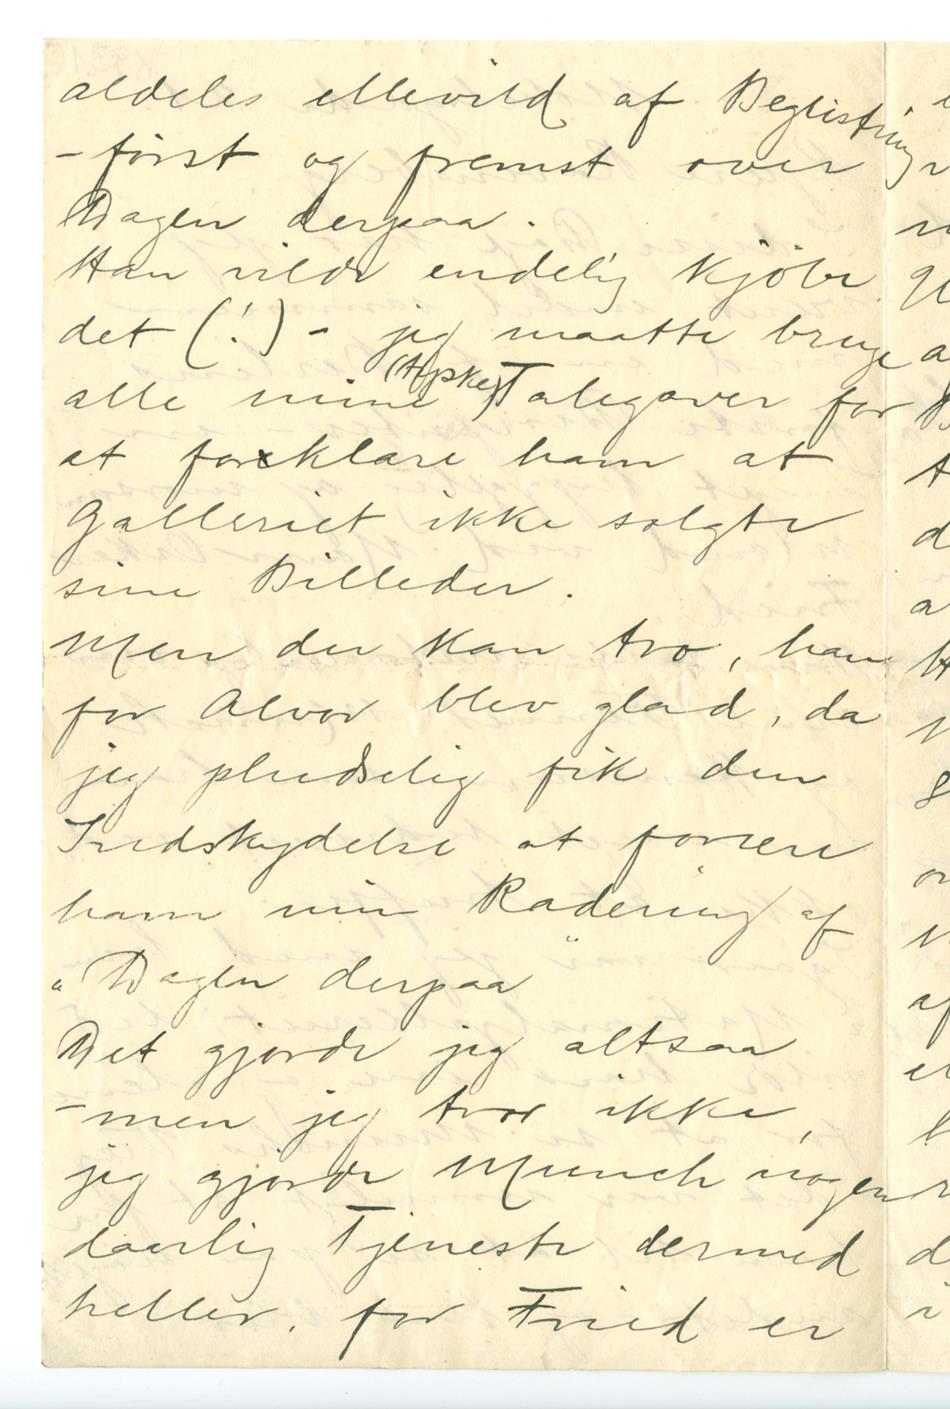 aldeles ellevild af Begeistring
– først og fremst over
Dagen derpaa.
Han vilde endelig kjøbe
det (!) – jeg maatte bruge
alle mine Talegaver for
at forklare ham at
Galleriet ikke solgte
sine Billeder.
Men du kan tro, han
for Alvor blev glad, da
jeg pludselig fik den
Indskydelse at forære
ham min Radering af
"Dagen derpaa"
Det gjorde jeg altsaa
– men jeg tror ikke,
jeg gjorde Munch nogen
daarlig Tjeneste dermed
heller, for Fried er